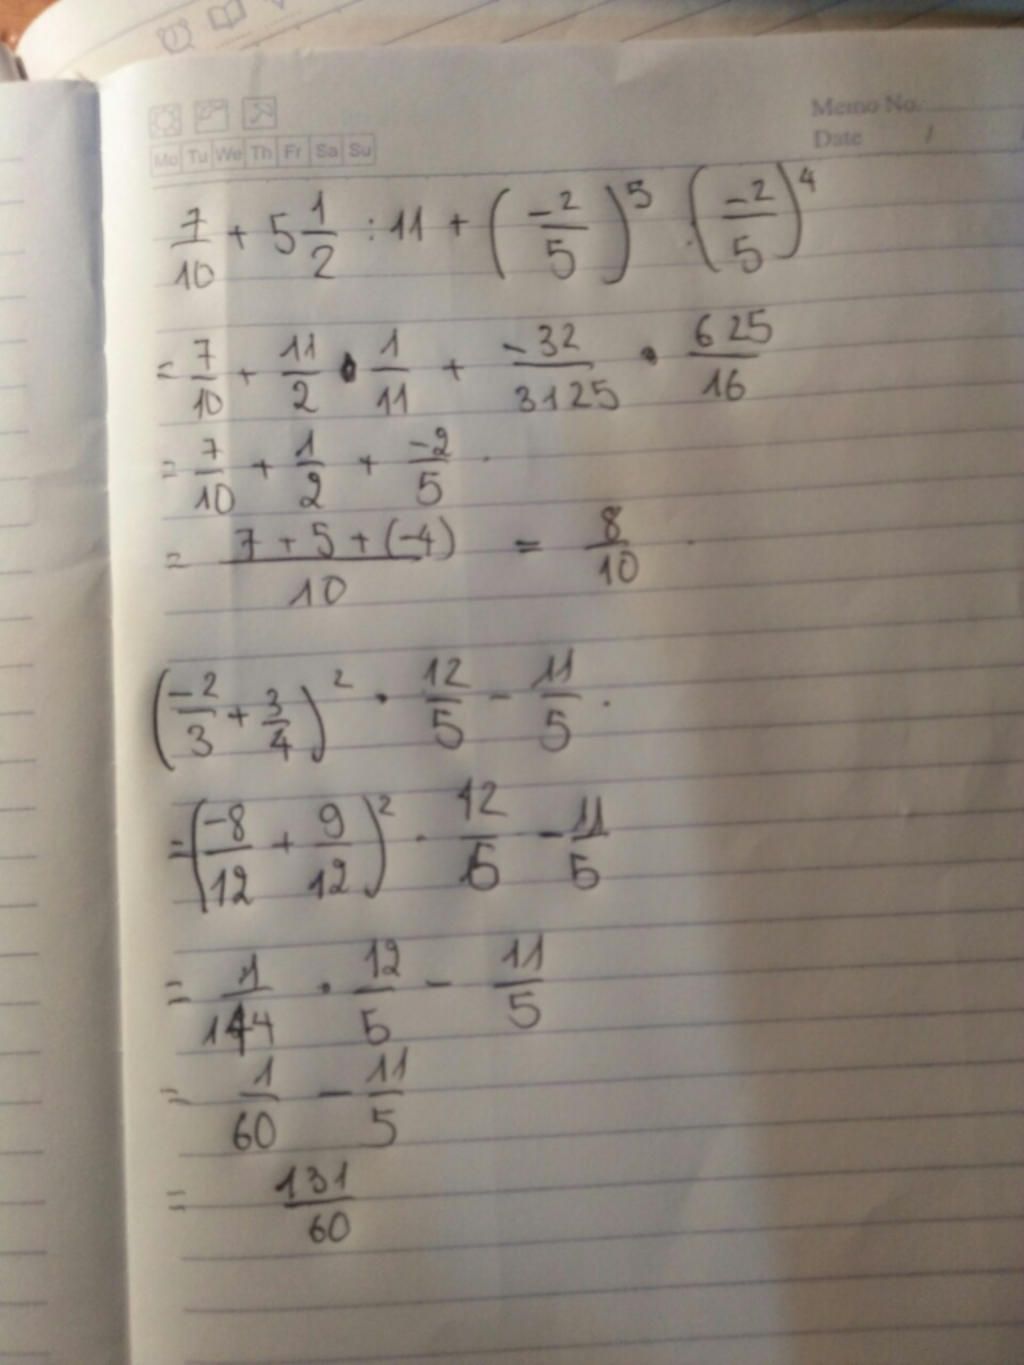 Memo No.
Mo Tu We Th Fr Sa Su
Date /
7/10 + 5 1/2 : 11 + (-2/5)^5 . (-2/5)^4
= 7/10 + 11/2 • 1/11 + -32/3125 • 625/16
= 7/10 + 1/2 + -2/5 .
= 7 + 5 + (-4)/10 = 8/10 .
(-2/3 + 3/4)^2 • 12/5 - 11/5 .
= (-8/12 + 9/12)^2 . 12/5 - 11/5
= 1/144 • 12/5 - 11/5
= 1/60 - 11/5
= 131/60